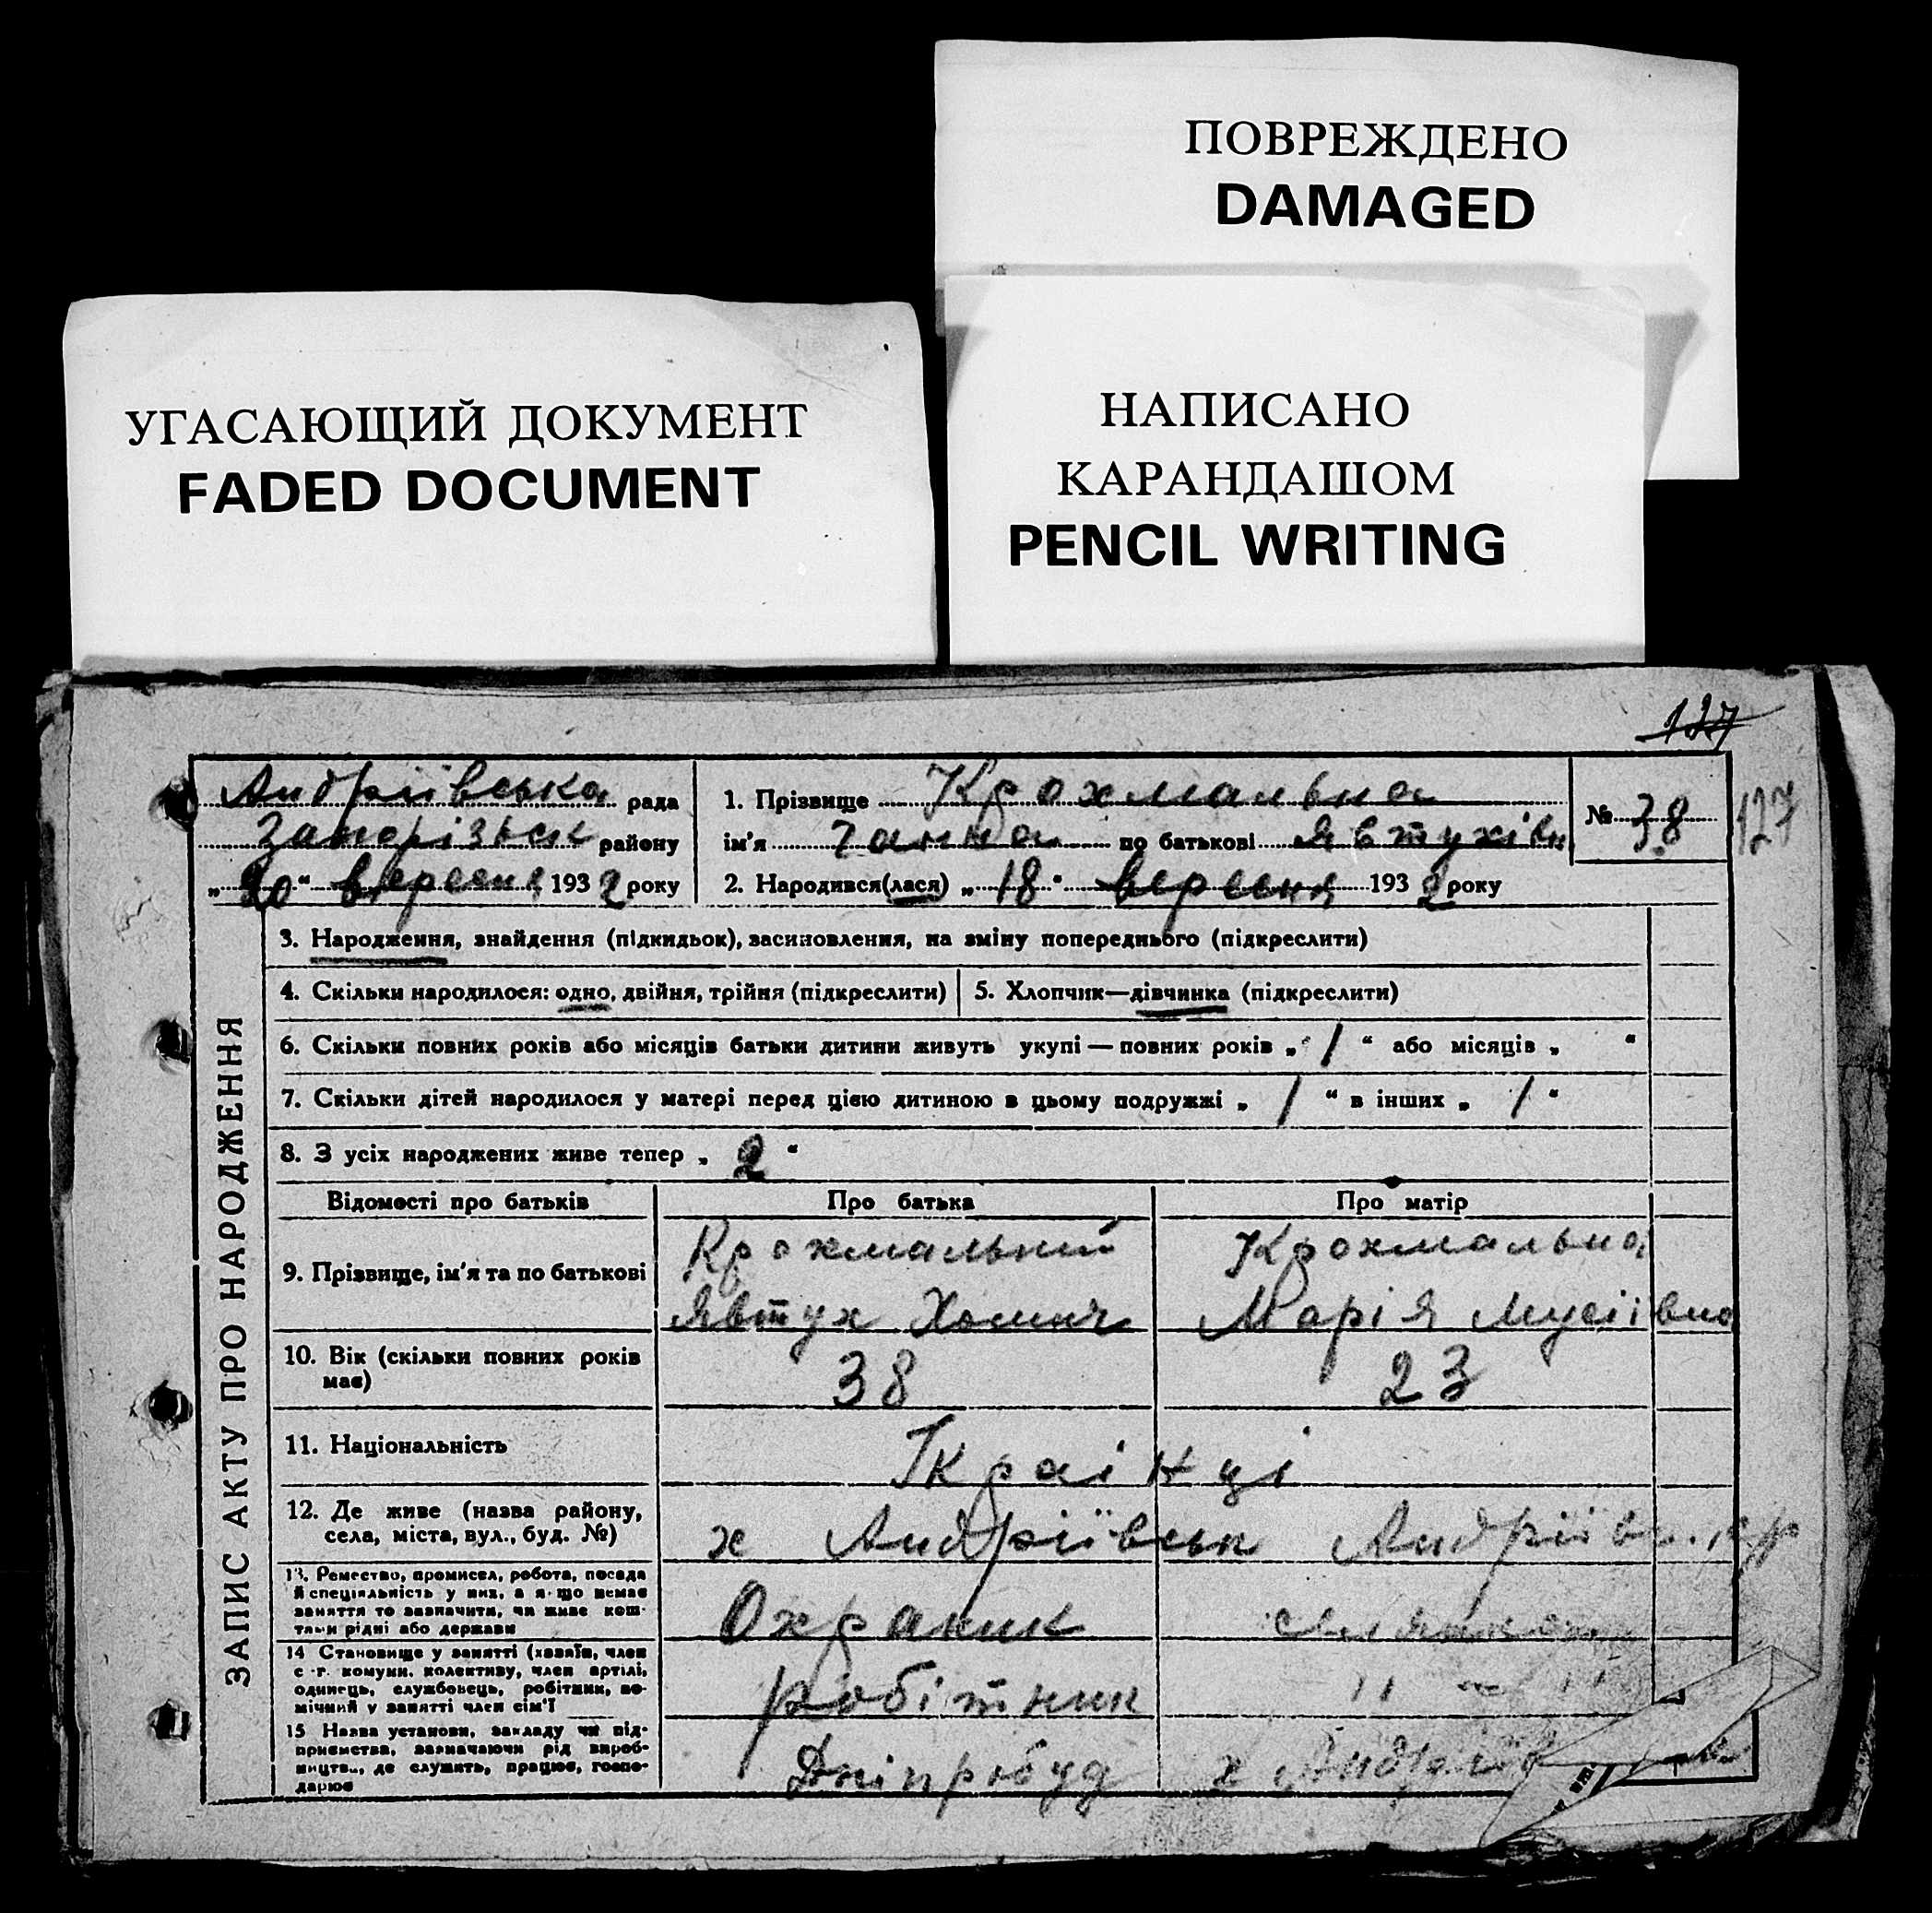 ПОВРЕЖДЕНО
DAMAGED
УГАСАЮЩИЙ ДОКУМЕНТ
FADED DOCUMENT
НАПИСАНО
КАРАНДАШОМ
PENCIL WRITING
127
127
ЗАПИС АКТУ ПРО НАРОДЖЕННЯ
Андріївська рада
Запорізьк району
„20“ вересня 1932 року
1. Прізвище Крохмальна
ім'я Ганна по батькові Явтухівн
2. Народився(лася) „18“ вересня 1932 року
№ 38
3. Народження, знайдення (підкидьок), засиновлення, на зміну попереднього (підкреслити)
4. Скільки народилося: одно, двійня, трійня (підкреслити)
5. Хлопчик—дівчинка (підкреслити)
6. Скільки повних років або місяців батьки дитини живуть укупі — повних років „ / “ або місяців „ “
7. Скільки дітей народилося у матері перед цією дитиною в цьому подружжі „ / “ в інших „ / “
8. З усіх народжених живе тепер „ 2 “
Відомості про батьків Про батька Про матір
9. Прізвище, ім'я та по батькові
Крохмальний
Явтух Хомич
Крохмальна
Марія Мусіївна
10. Вік (скільки повних років
має)
38 23
11. Національність
Українці
12. Де живе (назва району,
села, міста, вул., буд. №)
х Андріївськ
13. Ремество, промисел, робота, посада
й спеціяльність у них, а якщо немає
заняття то зазначити, чи живе кош-
тами рідні або держави
Охраник
14 Становище у занятті (хазяїн, член
с.-г. комуни, колективу, член артілі,
одинець, службовець, робітник, по-
мічний у занятті член сім'ї
робітник
" — "
15 Назва установи, закладу чи під-
приємства, зазначаючи рід вироб-
ництва, де служить, працює, госпо-
дарює
Дніпробуд
х